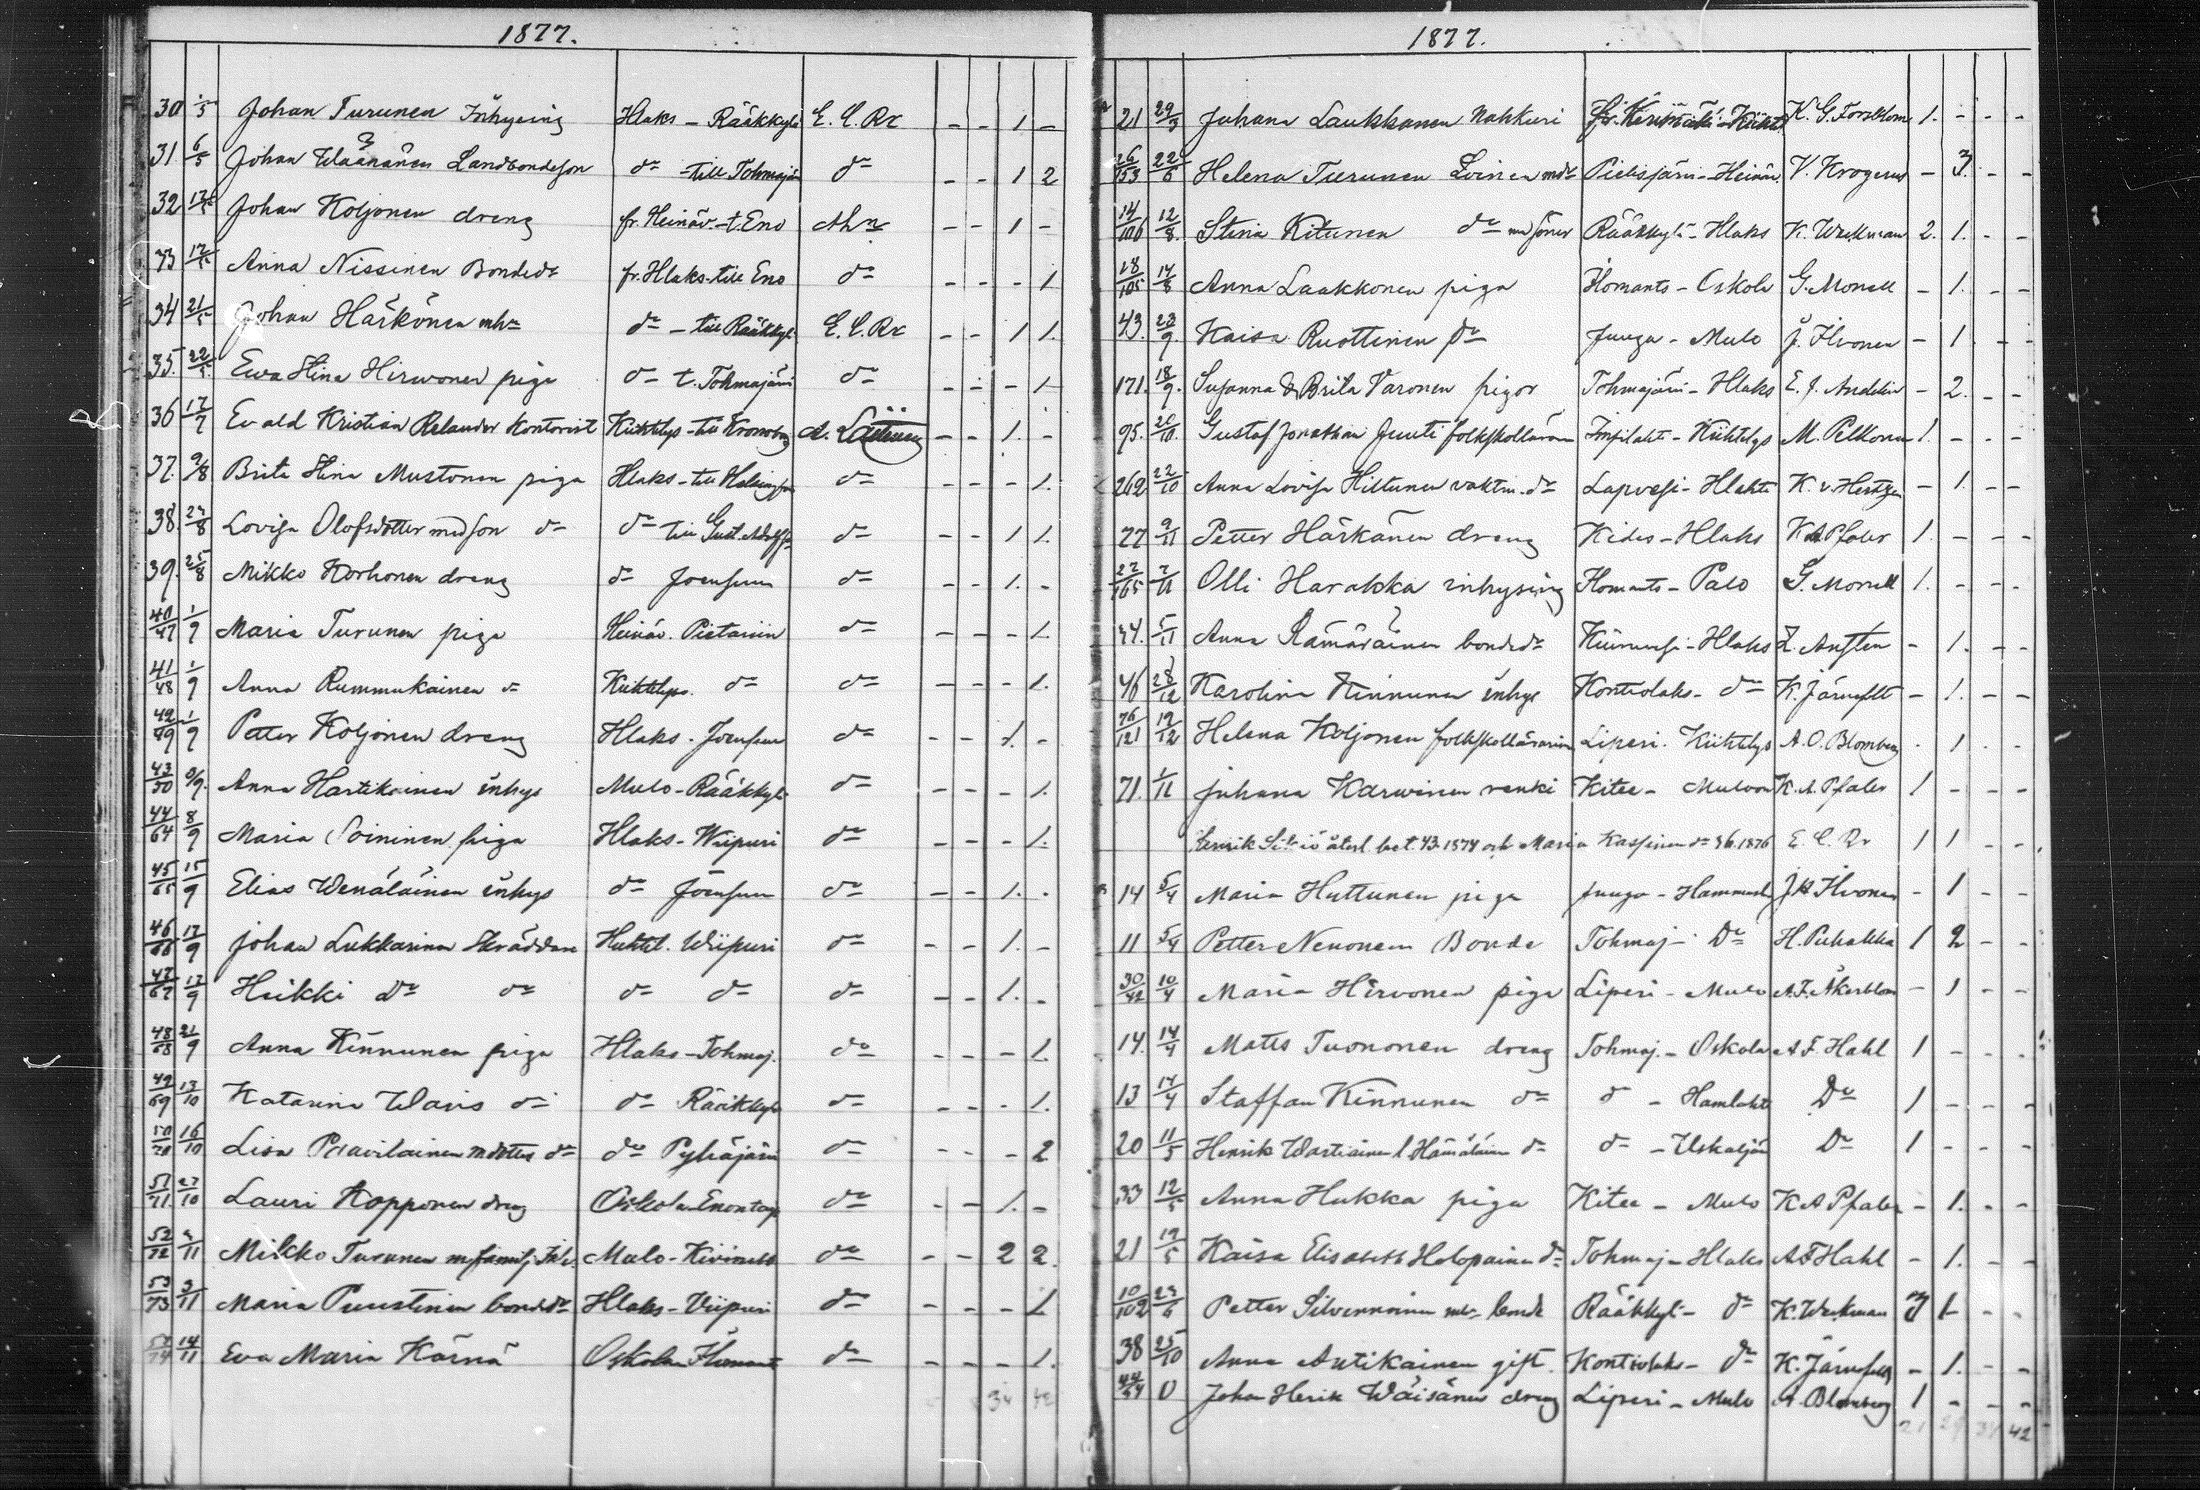 1877.
30 /5 Johan Turunen Inhysing Hlaks - Rääkkylä E. C. Rx - - 1 -
31 6/5 Johan Wäänänen Landbondeson do - till Tohmajär do - - 1 2
32 12/5 Johan Koljonen dreng fr. Heinäv. - t. Eno - - 1 -
33 12/5 Anna Nissinen Bondedr fr. Hlaks - till Eno do - - - 1
34 21/5 Johan Härkönen mhu do - till Rääkkyl E. C. Rx - - 1 1.
35. 22/5 Ewa Stina Hirwonen piga do t. Tohmajärvi do - - - 1
36 17/7 Ewald Kristian Relander Kontorist Kiihtelys - till Kronoborg - - 1. -
37. 9/8 Brita Stina Mustonen piga Hlaks - till Helsingfors do - - - 1.
38. 23/8 Lovisa Olofsdotter med son do do till Gust. Adolfs do - - 1 1.
39. 25/8 Mikko Korhonen dreng do Joensuu do - - 1. -
40/47 1/9 Maria Turunen piga Heinäv. Pietariin do - - - 1.
41/48 1/9 Anna Rummukainen do Kiihtelys. do do - - - 1.
42/49 1/9 Petter Koljonen dreng Hlaks - Joensuu do - - 1. -
43/50 8/9. Anna Hartikainen inhys Mulo - Rääkkyl do - - - 1.
44/64 8/9 Maria Soininen piga Hlaks - Wiipuri do - - - 1.
45/65 15/9 Elias Wenäläinen inhys do Joensuu do - - 1. -
46/66 17/9 Johan Lukkarinen Skräddare Kiihtel. Wiipuri do - - 1. -
47/67 17/9 Heikki Do do do do do - - 1. -
48/68 21/9 Anna Kinnunen piga Hlaks - Tohmaj. do - - - 1.
49/69 13/10 Katarina Waris do do Rääkkylä do - - - 1.
50/70 16/10 Lisa Paavilainen m dotter do do Pyhäjärvi do - - - 2
51/71. 27/10 Lauri Kopponen dreng Oskola - Enontaip do - - 1. -
52/72 2/11 Mikko Turunen m familj Inh. Mulo - Kivin do - - 2 2.
53/73 3/11 Maria Puustinen bondedr Hlaks - Viipuri do - - - 1
54/74 14/11 Eva Maria Kärnä Oskola - Ilomants do - - - 1.
34 42
1877.
21 29/3 Juhana Laukkanen Nahkuri fr. Kerimäki - Kiihtel K. G. Forsblom 1. - - -
26/153 22/6 Helena Turunen Loinen mdr Pielisjärvi - Heinäv. V. Krogerus - 3. - -
14/106 12/8. Stina Kitunen do m söner Rääkkylä - Hlaks K. Wirkman 2. 1. - -
18/105 14/8 Anna Laakkonen piga Ilomants - Oskola G. Monell - 1. - -
43. 23/9. Kaisa Ruottinen do Juuga - Mulo J. Ilvonen - 1 - -
171. 18/9. Susanna & Brita Varonen pigor Tohmajärvi - Hlaks E. J. Andelin - 2. - -
95. 20/10. Gustaf Jonathan Juuti folkskollärare Impilaht - Kiihtelys M. Pelkonen 1. - - -
262 22/10 Anna Lovisa Hiltunen vaktm. dr Lapvesi - Hlahti K. v. Hertzen - 1. - -
22 9/11 Petter Härkänen dreng Kides - Hlaks K A Pfaler 1. - - -
27/165 2/11 Olli Harakka inhysing Ilomants - Palo G. Monell 1. - - -
34. 5/11 Anna Rämäräinen bondedr Kiuruvesi - Hlaks - 1. - -
46 28/12 Karolina Kinnunen inhys Kontiolaks - do K. Järnefelt - 1. - -
76/121 19/12 Helena Koljonen folkskollärarinna Liperi. Kiihtelys A. O. Blomberg - 1 - -
71. 1/11 Juhana Karwinen renki Kitee - Muloon K. A. Pfaler 1 - - -
Henrik återl. bet. 43. 1874 och Maria Kassinen do 86. 1876 E. C. Rx 1 1 - -
14 5/4 Maria Huttunen piga Juuga - Hammasl J H Ilvonen - 1 - -
11 5/4 Petter Nenonen Bonde Tohmaj - Do H. Puhakka 1 2 - -
30/42 10/4 Maria Hirvonen piga Liperi - Mulo A. F. Åkerblom - 1 - -
14. 14/4 Matts Tuononen dreng Tohmaj. - Oskola A F. Hahl 1 - - -
13 14/4 Staffan Kinnunen do d - Hamlahti Do 1 - - -
20 11/5 Henrik Wartiainen l. Hämäläinen do do - Uskaljär Do 1 - - -
33 12/5 Anna Hukka piga Kitee - Mulo K A Pfaler - 1. - -
21 19/5 Kaisa Elisabeth Holopainen do Tohmaj - Hlaks A F Hahl - 1. - -
10/102 23/6 Petter Silvennoinen mh bonde Rääkkyl - do K. Wirkman 3 1 - -
38 25/10 Anna Antikainen gift Kontiolaks - do K. Järnefelt - 1. - -
44/54 0 Johan Henrik Wäisänen dreng Liperi - Mulo A. Blomberg 1 - - -
21 29 34 42